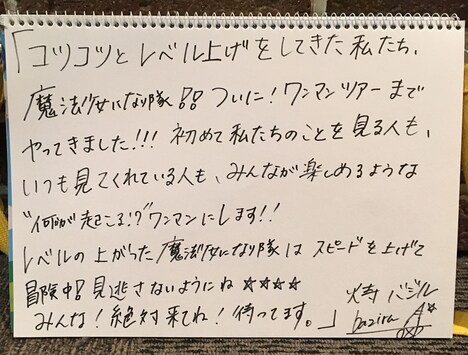 「コツコツとレベル上げをしてきた私たち、
魔法少女になり隊!!ついに!ワンマンツアーまで
やってきました!!!初めて私たちのことを見る人も、
いつも見てくれている人も、みんなが楽しめるような
"何が起こる!?"ワンマンにします!!
レベルの上がった魔法少女になり隊はスピードを上げて
冒険中!見逃さないようにね☆☆☆☆
みんな!絶対来てね!待ってます。」
火寺バジル
bazira